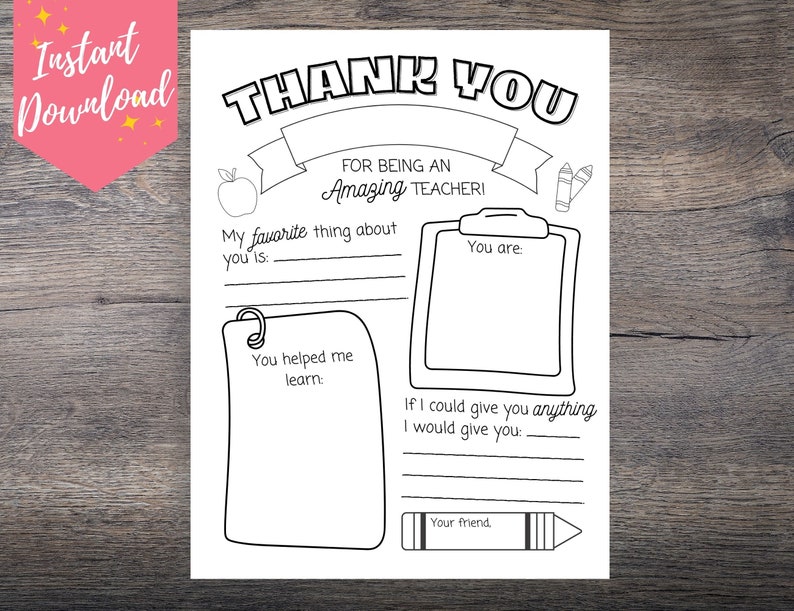 Instant
Download
THANK YOU
FOR BEING AN
Amazing TEACHER!
My favorite thing about
you is:
You are:
You helped me
learn:
If I could give you anything
I would give you:
Your friend,